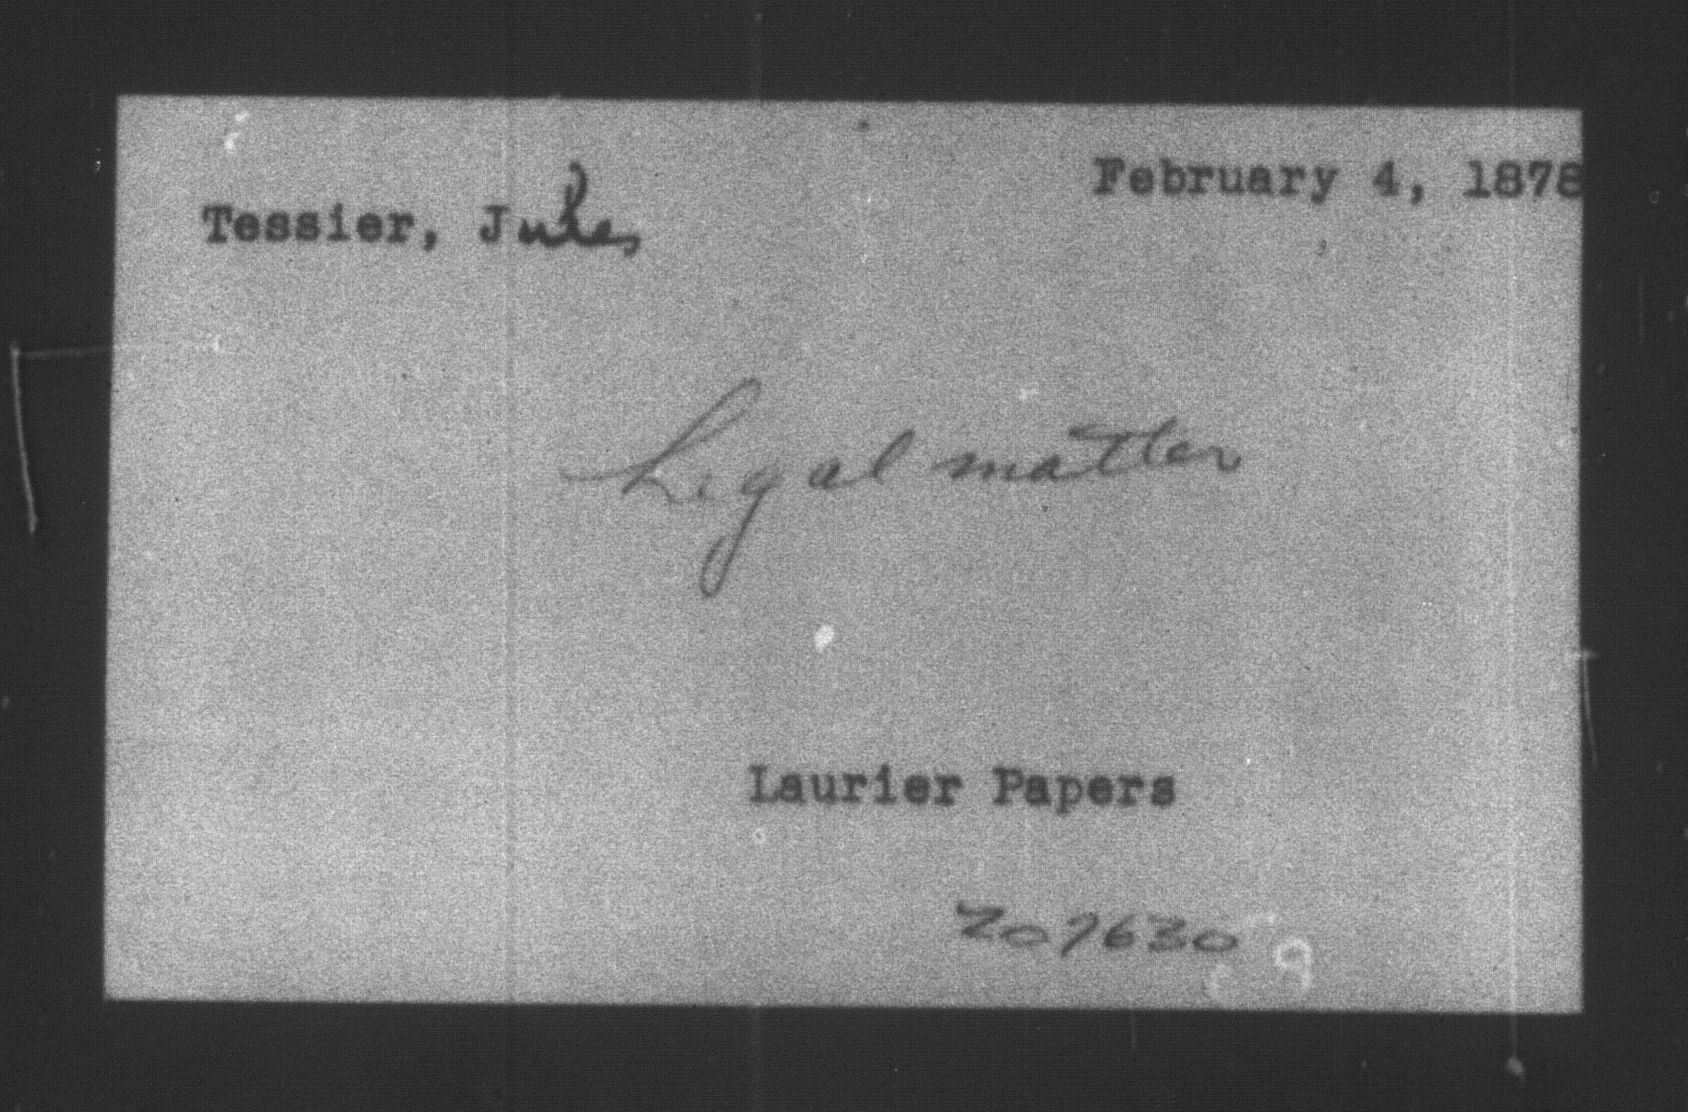 February 4, 1878
Tessier, Jules
Legal matter
Laurier Papers
207630